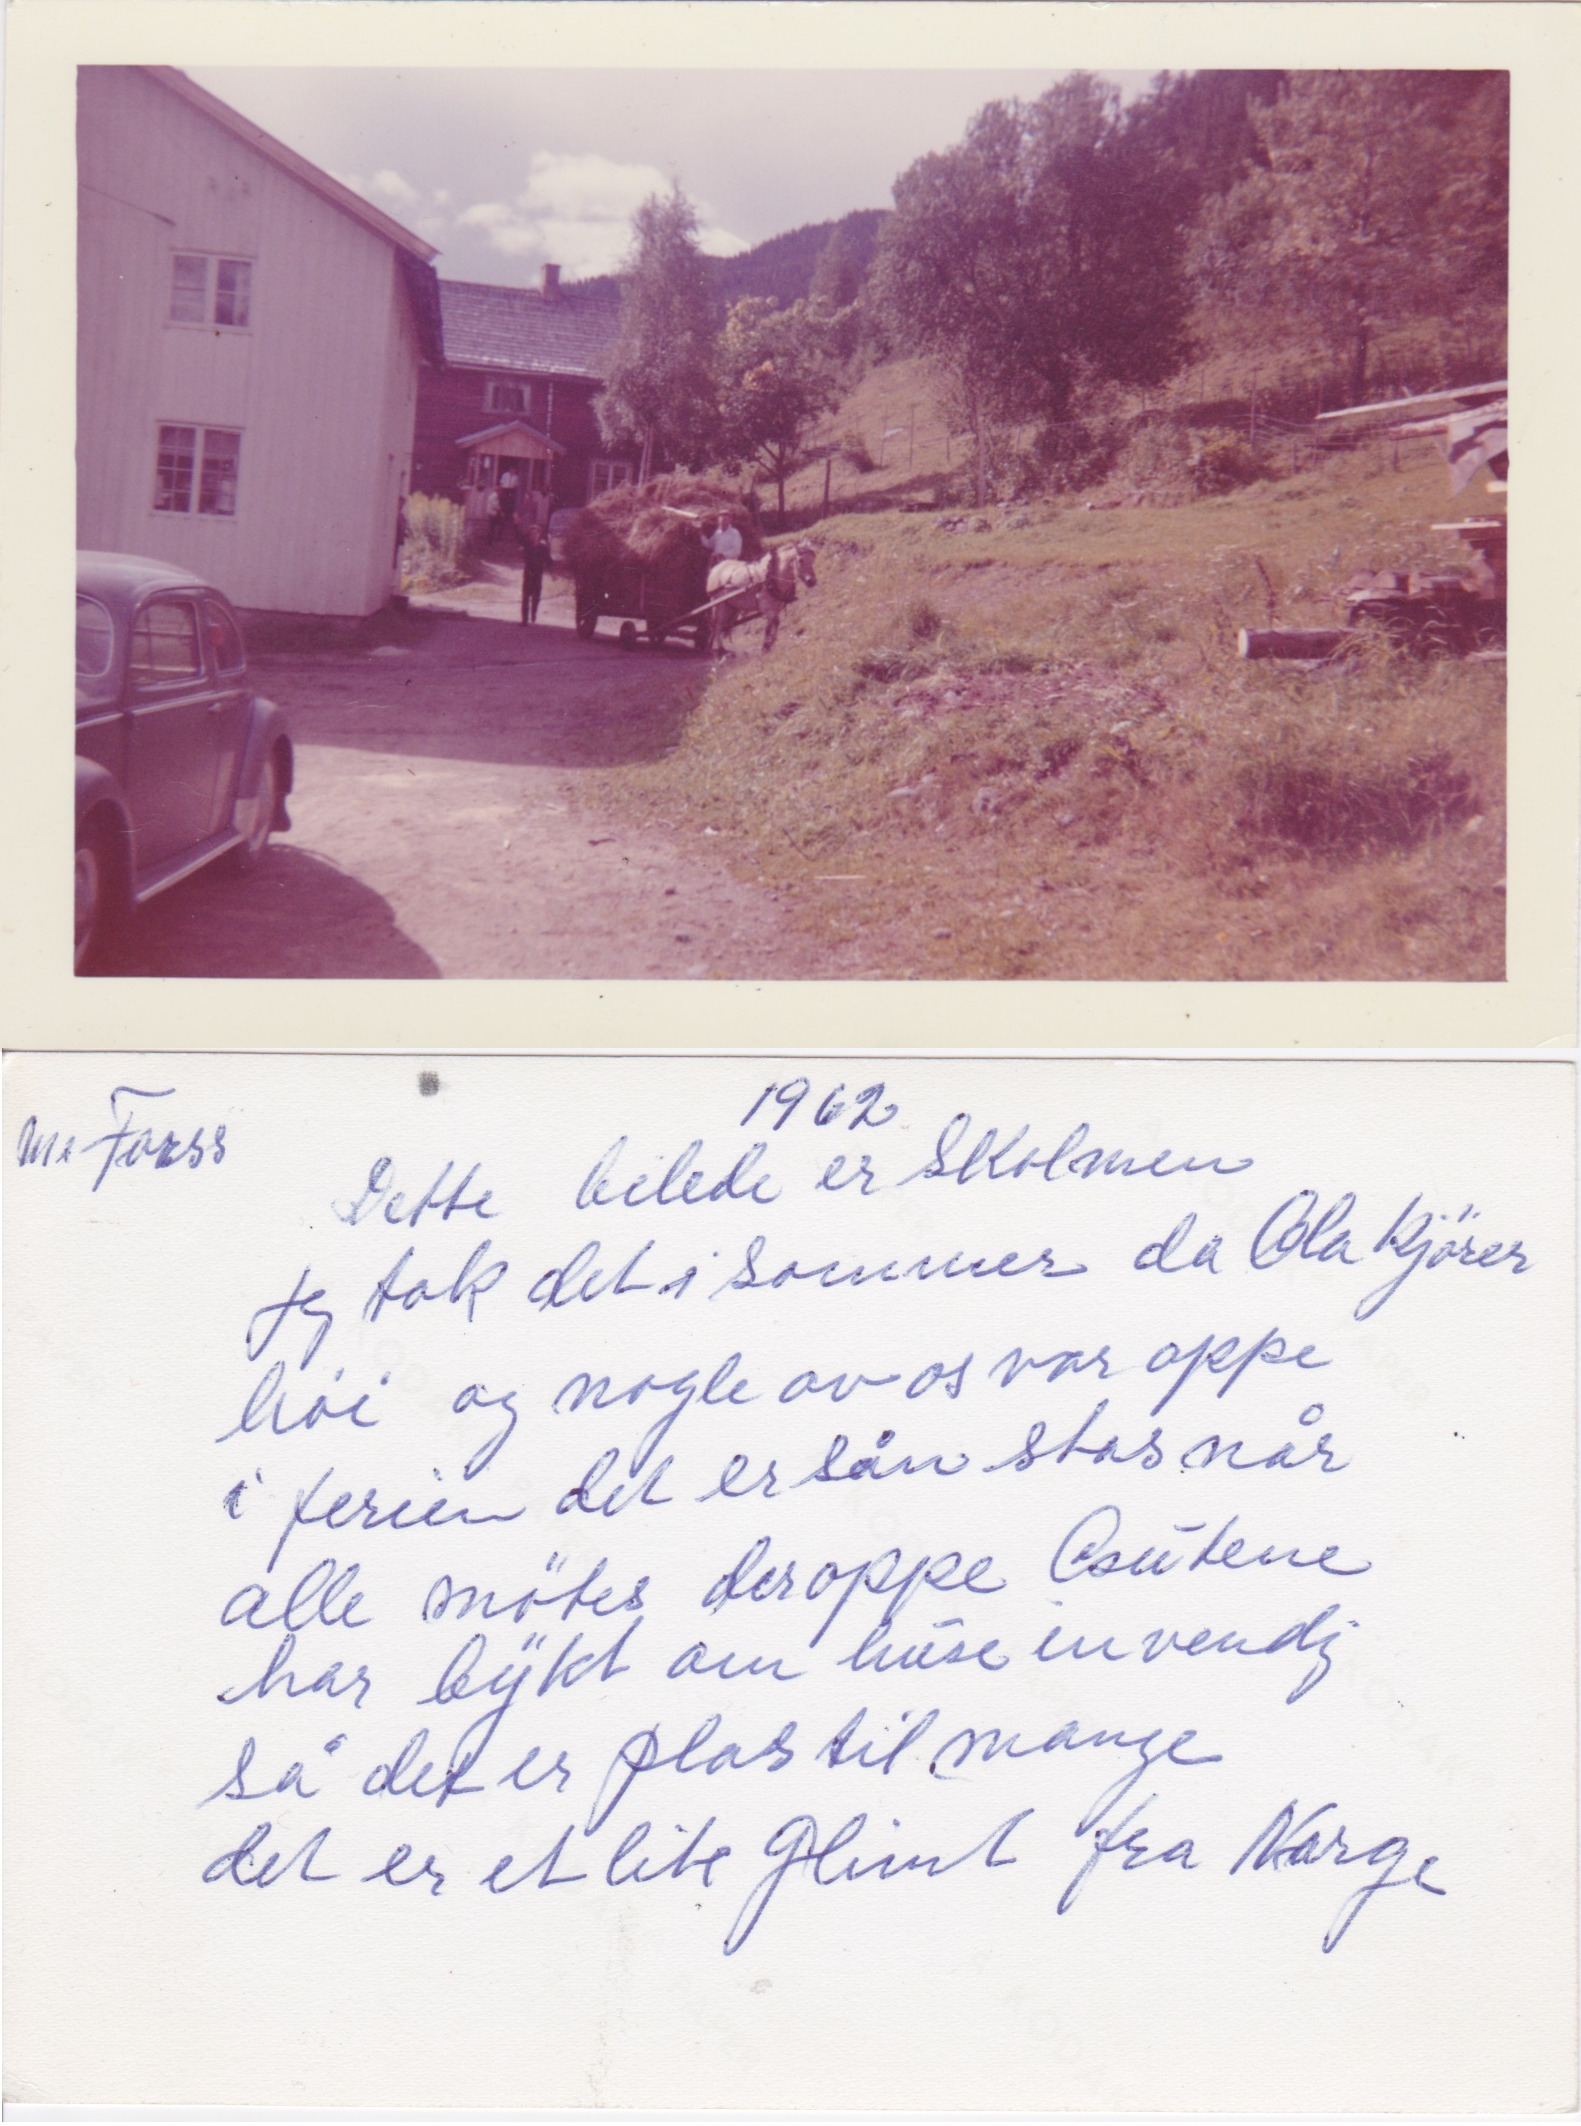 1962
Mr Forss
Dette bilede er Skolmen
Jeg tok det i Sommer da Ola Kjörer
höi og nogle av os var oppe
i ferien det er sån stas når
alle mötes deroppe
har bÿkt om hüse invendig
så det er plas til mange
det er et lite Glimt fra Norge